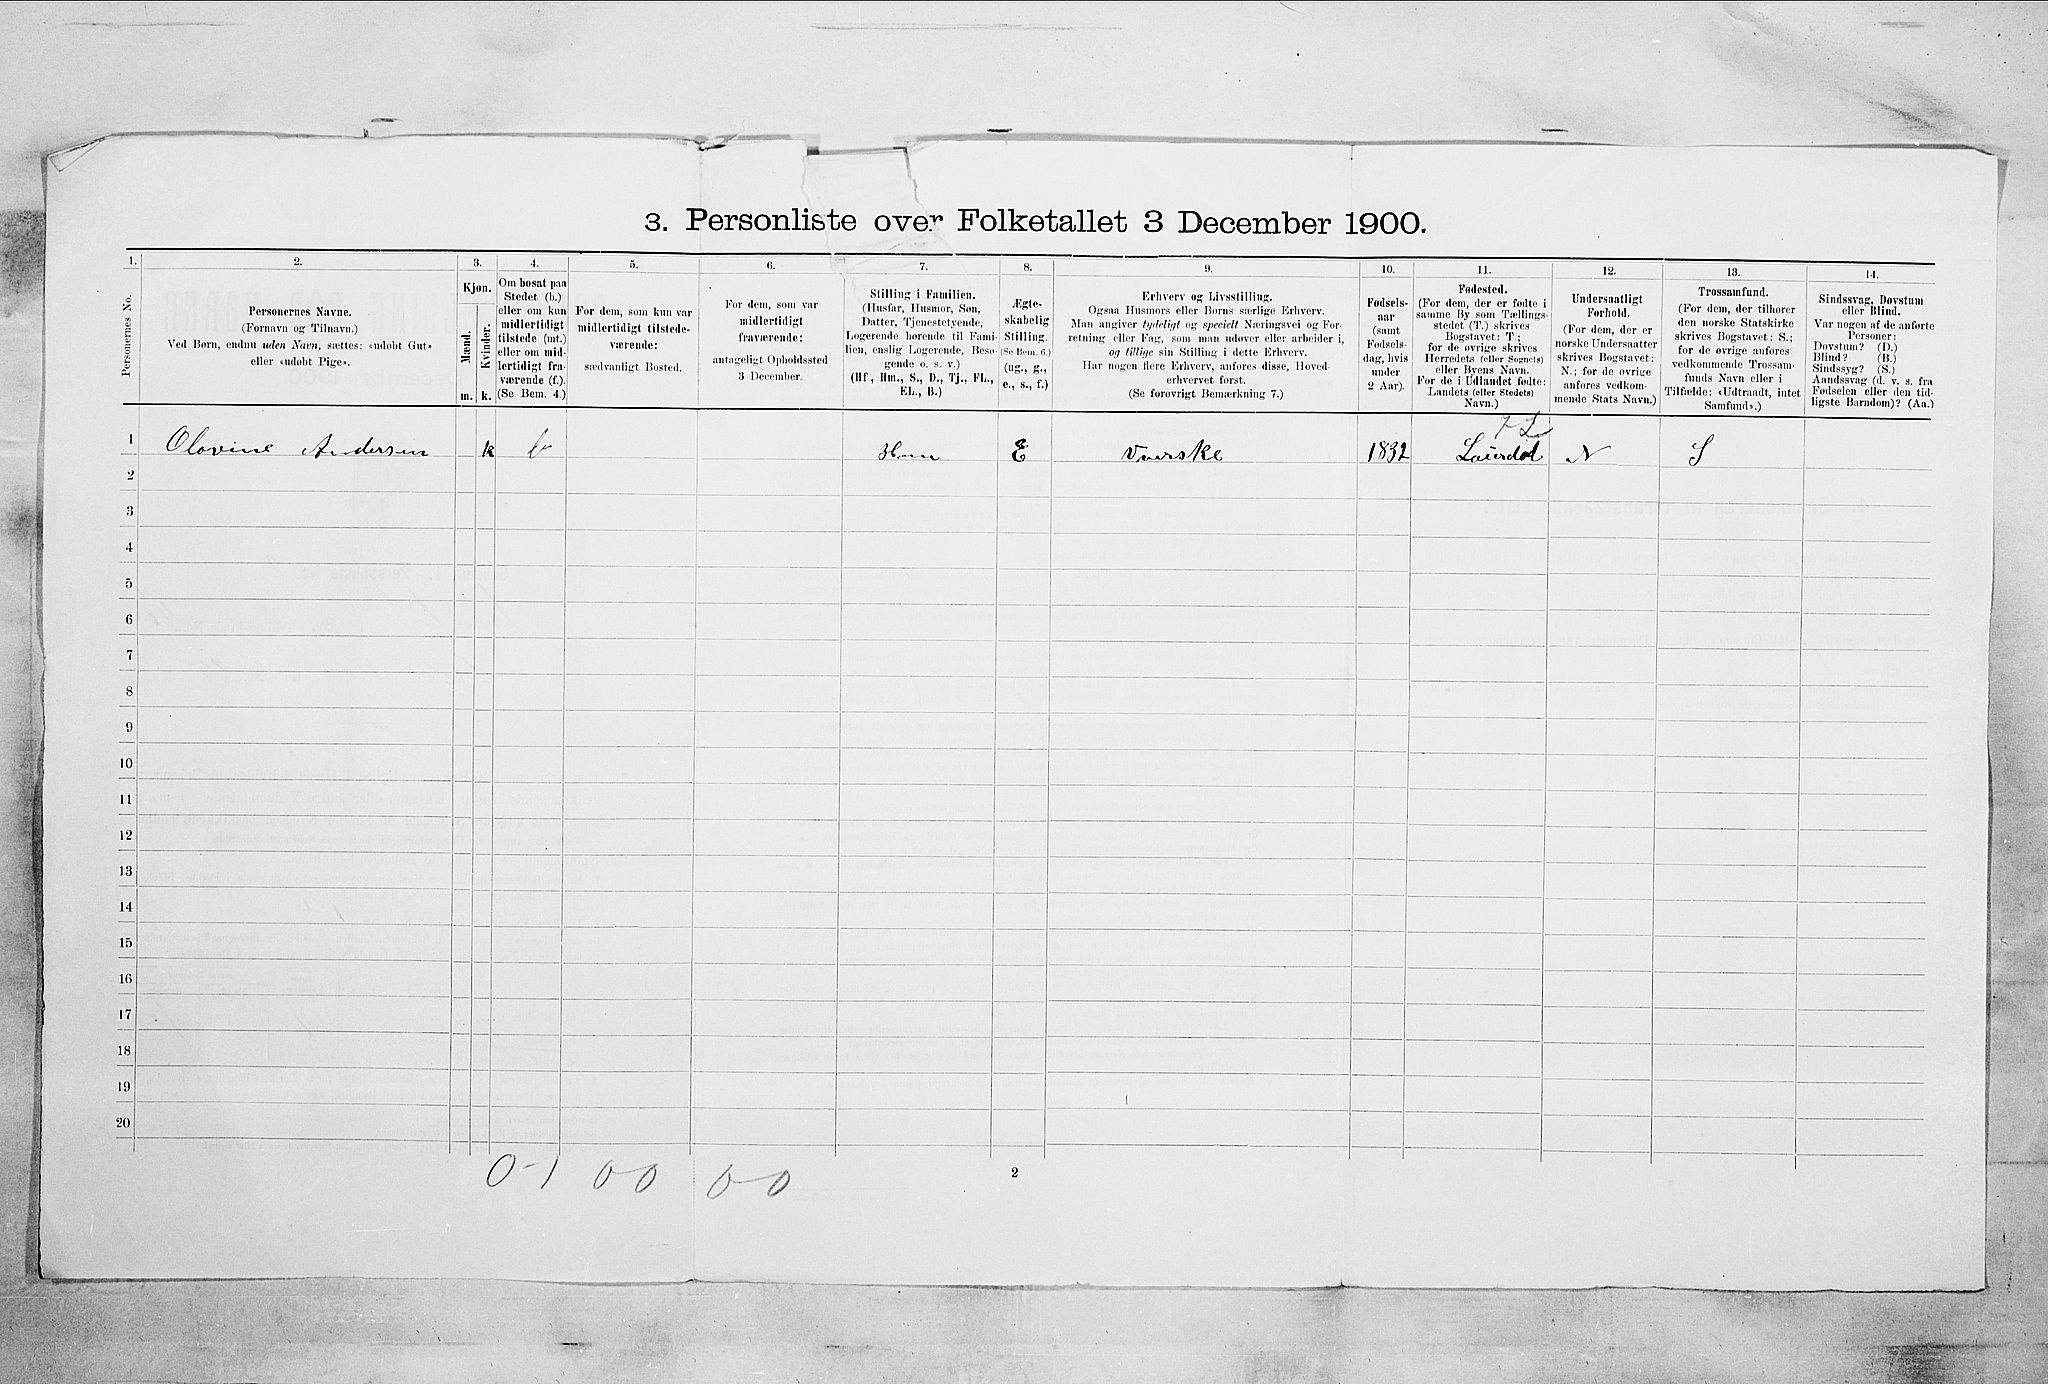 3. Personliste over Folketallet 3 December 1900.
1.
2.
3.
4.
5.
6.
7.
8.
9.
10.
11.
12.
13.
14.
Personernes No.
Personernes Navne.
(Fornavn og Tilnavn.)
Ved Børn, endnu uden Navn, sættes: «udøbt Gut»
eller «udøbt Pige».
Kjøn.
Mænd.
Kvinder.
m.
k.
Om bosat paa
Stedet (b.)
eller om kun
midlertidigt
tilstede (mt.)
eller om mid-
lertidigt fra-
værende (f.).
(Se Bem. 4.)
For dem, som kun var
midlertidigt tilstede-
værende:
sædvanligt Bosted.
For dem, som var
midlertidigt
fraværende:
antageligt Opholdssted
3 December.
Stilling i Familien.
(Husfar, Husmor, Søn,
Datter, Tjenestetyende,
Logerende hørende til Fami-
lien, enslig Logerende, Besø-
gende o. s. v.)
(Hf., Hm., S., D., Tj., FL.,
EL., B.)
Ægte-
skabelig
Stilling.
(Se Bem. 6.)
(ug., g.,
e., s., f.)
Erhverv og Livsstilling.
Ogsaa Husmors eller Børns særlige Erhverv.
Man angiver tydeligt og specielt Næringsvei og For-
retning eller Fag, som man udøver eller arbeider i,
og tillige sin Stilling i dette Erhverv.
Har nogen flere Erhverv, anføres disse, Hoved-
erhvervet først.
(Se forøvrigt Bemærkning 7.)
Fødsels-
aar
(samt
Fødsels-
dag, hvis
under
2 Aar).
Fødested.
(For dem, der er fødte i
samme By som Tællings-
stedet (T.) skrives
Bogstavet: T;
for de øvrige skrives
Herredets (eller Sognets)
eller Byens Navn.
For de i Udlandet fødte:
Landets (eller Stedets)
Navn.)
Undersaatligt
Forhold.
(For dem, der er
norske Undersaatter
skrives Bogstavet:
N.; for de øvrige
anføres vedkom-
mende Stats Navn.)
Trossamfund.
(For dem, der tilhører
den norske Statskirke
skrives Bogstavet: S.;
for de øvrige anføres
vedkommende Trossam-
funds Navn eller i
Tilfælde: «Udtraadt, intet
Samfund».)
Sindssvag, Døvstum
eller Blind.
Var nogen af de anførte
Personer:
Døvstum? (D.)
Blind? (B.)
Sindssyg? (S.)
Aandssvag (d. v. s. fra
Fødselen eller den tid-
ligste Barndom)? (Aa.)
1 Olovine Andersen k b Hm E Vaerske 1832 N S
2
3
4
5
6
7
8
9
10
11
12
13
14
15
16
17
18
19
20
0-1 0-0 0-0
2